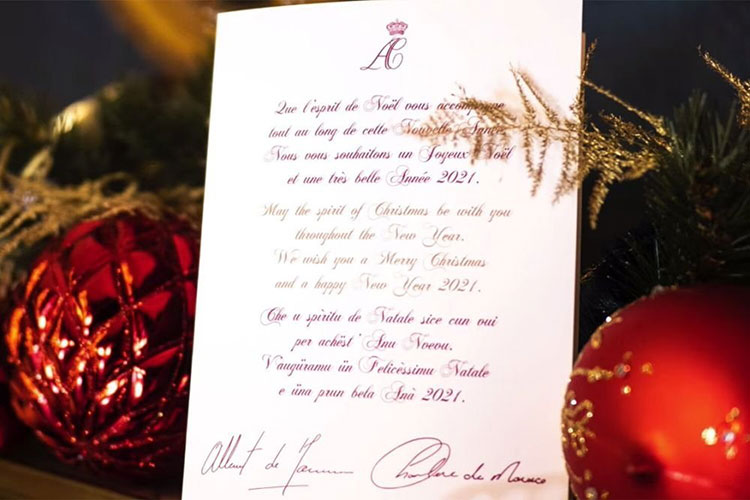 AC
Que l'esprit de Noël vous accompagne
tout au long de cette Nouvelle Année.
Nous vous souhaitons un Joyeux Noël
et une très belle Année 2021.
May the spirit of Christmas be with you
throughout the New Year.
We wish you a Merry Christmas
and a happy New Year 2021.
Che u spiritu de Natale sice cun vui
per achëst' Anu Noevu.
V'augüramu ün Felicèssimu Natale
e üna prun bela Anà 2021.
Albert de Monaco Charlene de Monaco